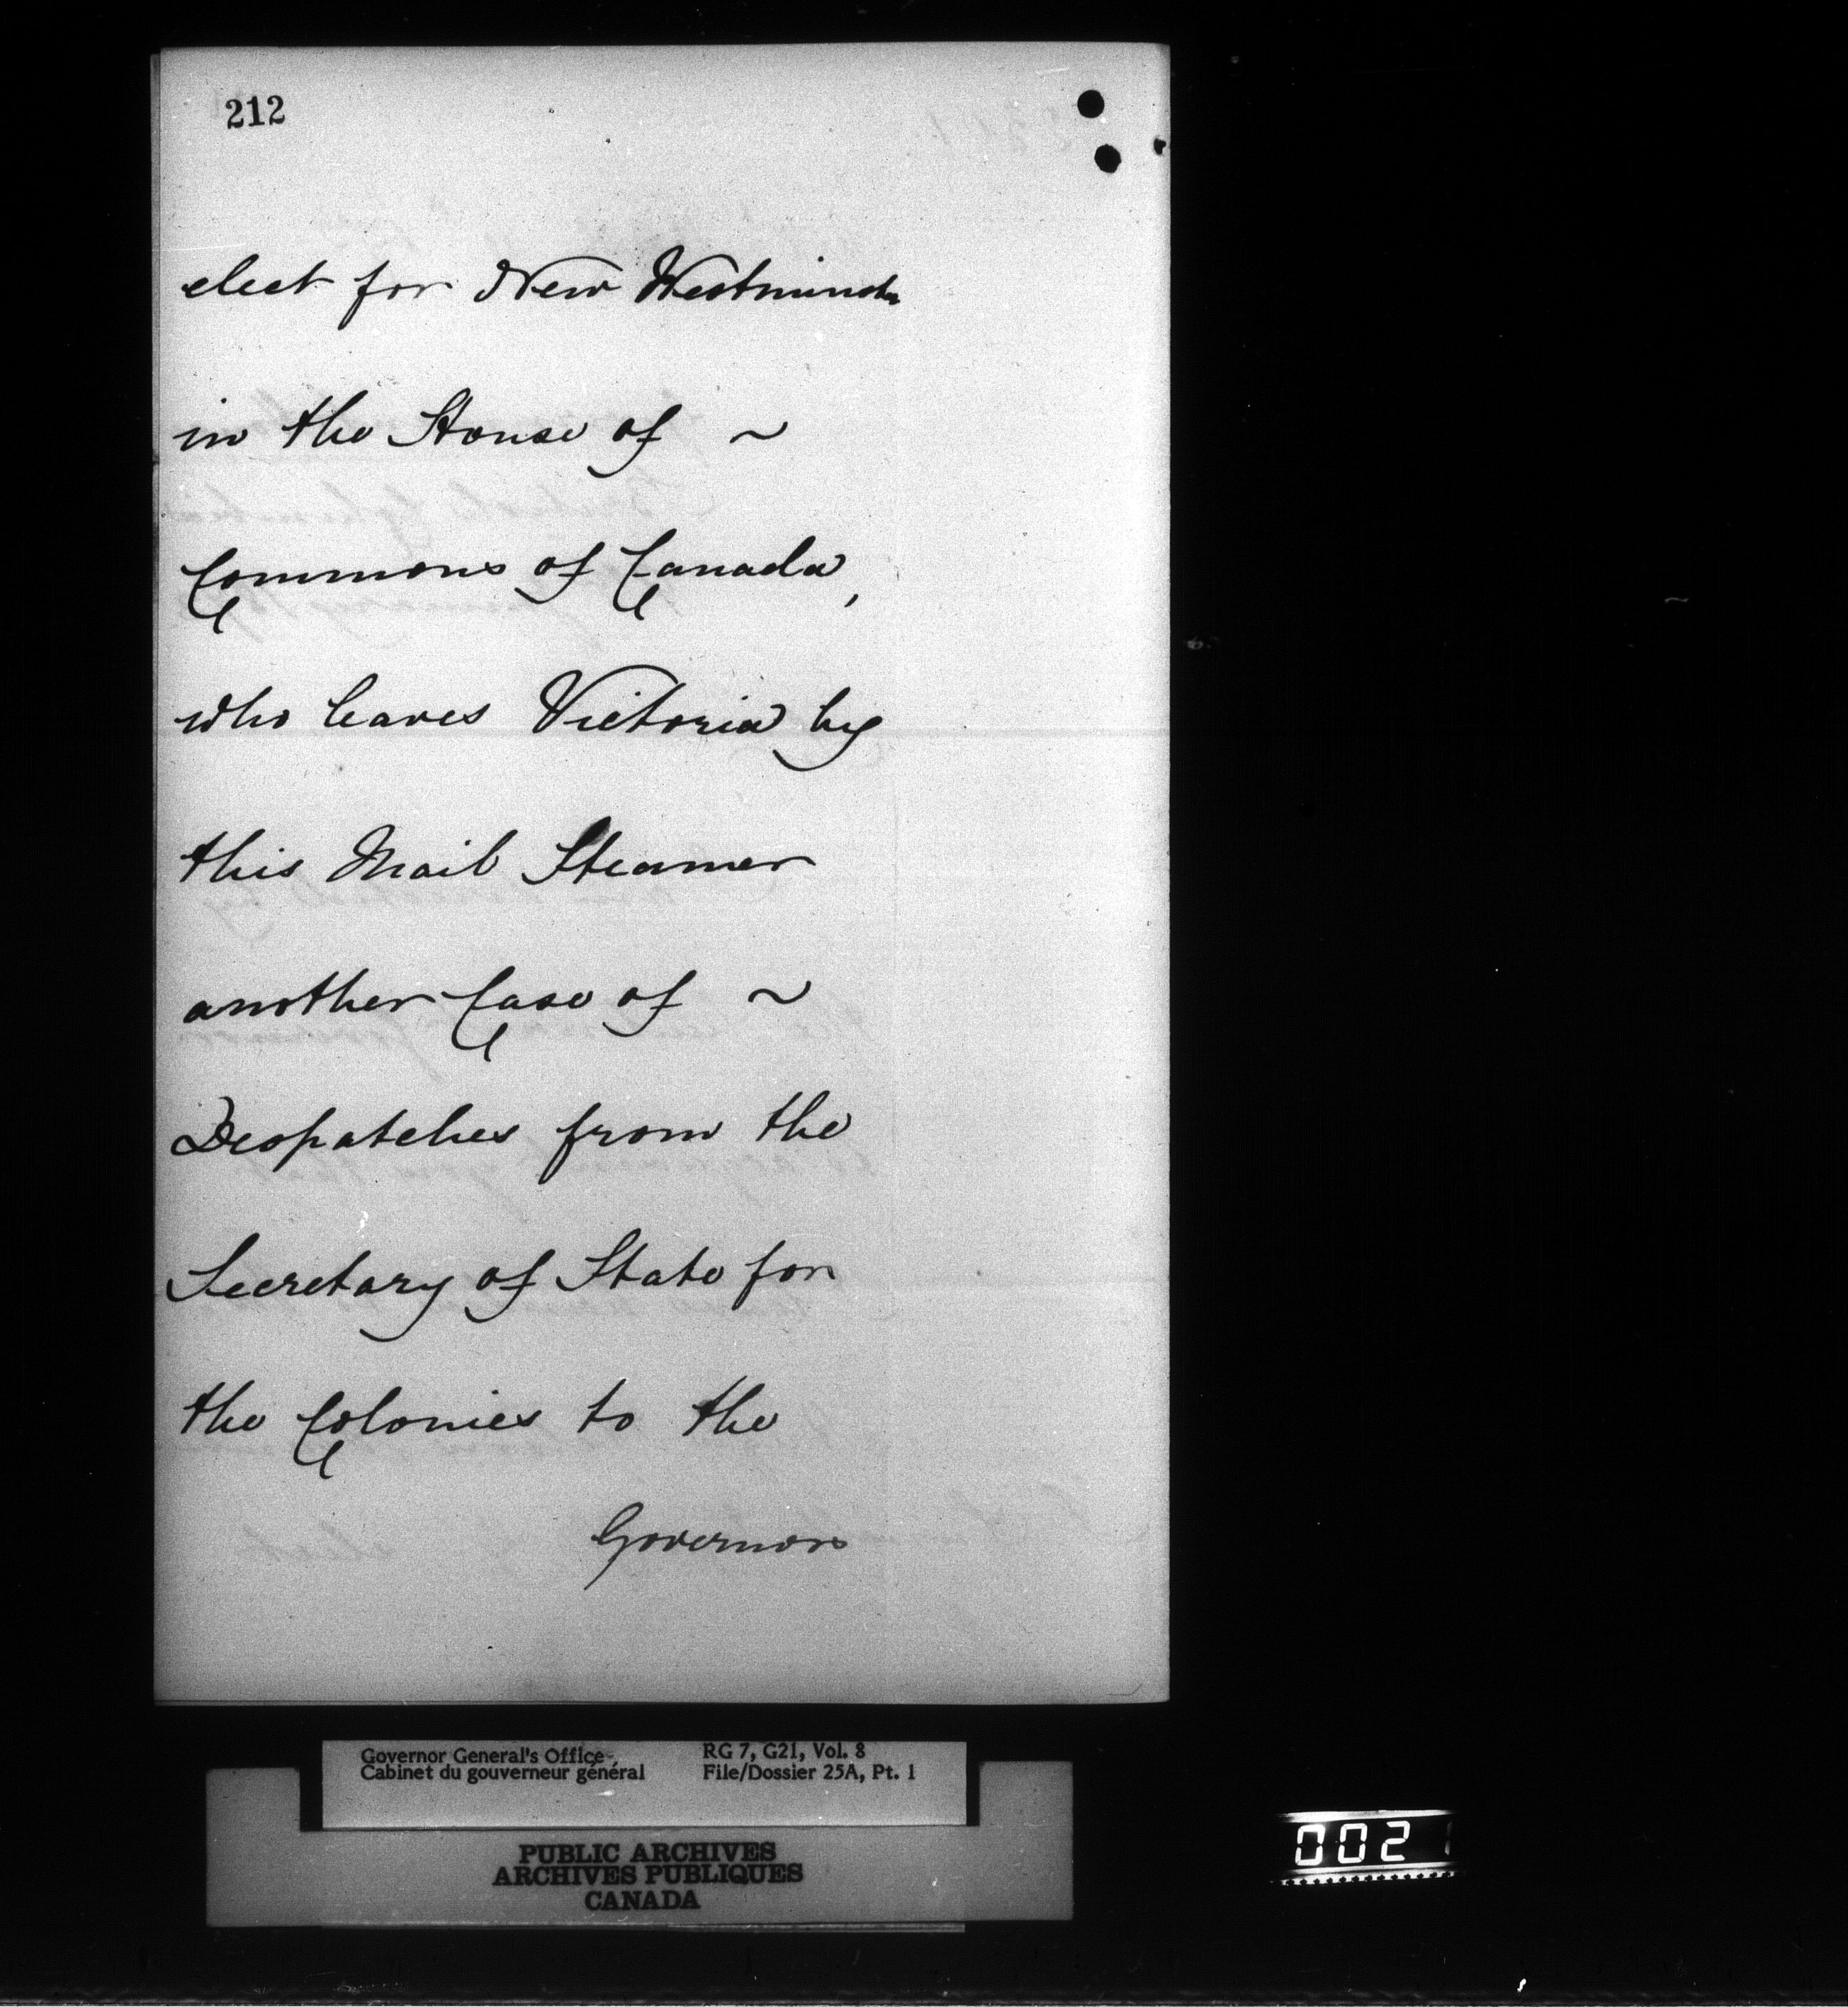 212
elect for New Westminster
in the House of ~
Commons of Canada,
who leaves Victoria by
this Mail Steamer
another Case of ~
Despatches from the
Secretary of State for
the Colonies to the
Governors
Governor General's Office
Cabinet du gouverneur général
RG 7, G21, Vol. 8
File/Dossier 25A, Pt. 1
PUBLIC ARCHIVES
ARCHIVES PUBLIQUES
CANADA
0021